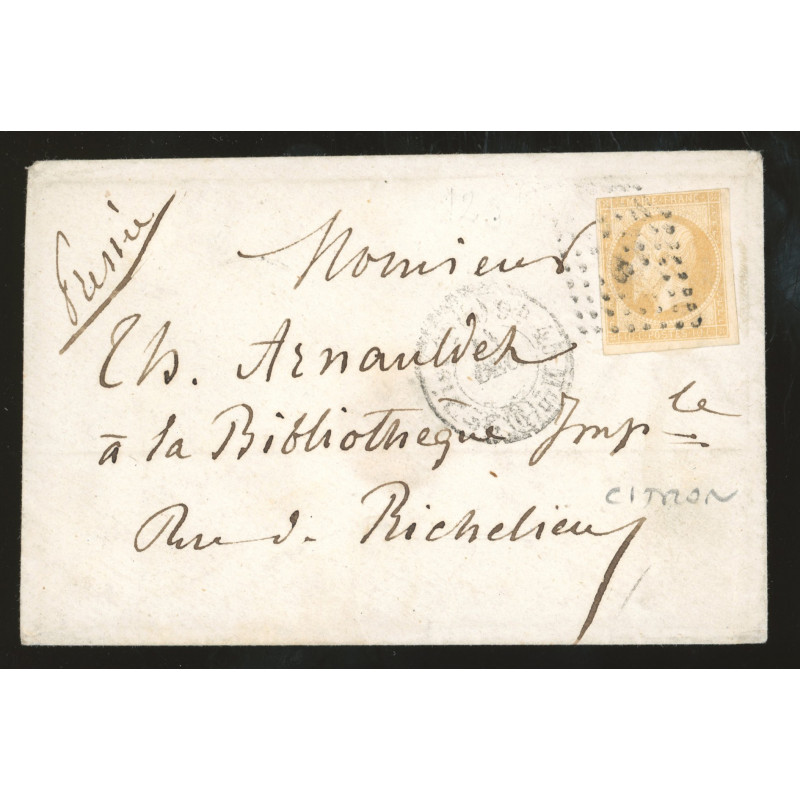 Pressée
Monsieur
Th. Arnauldet
à la Bibliothèque Imple
Rue de Richelieu
EMPIRE FRANC
CITRON